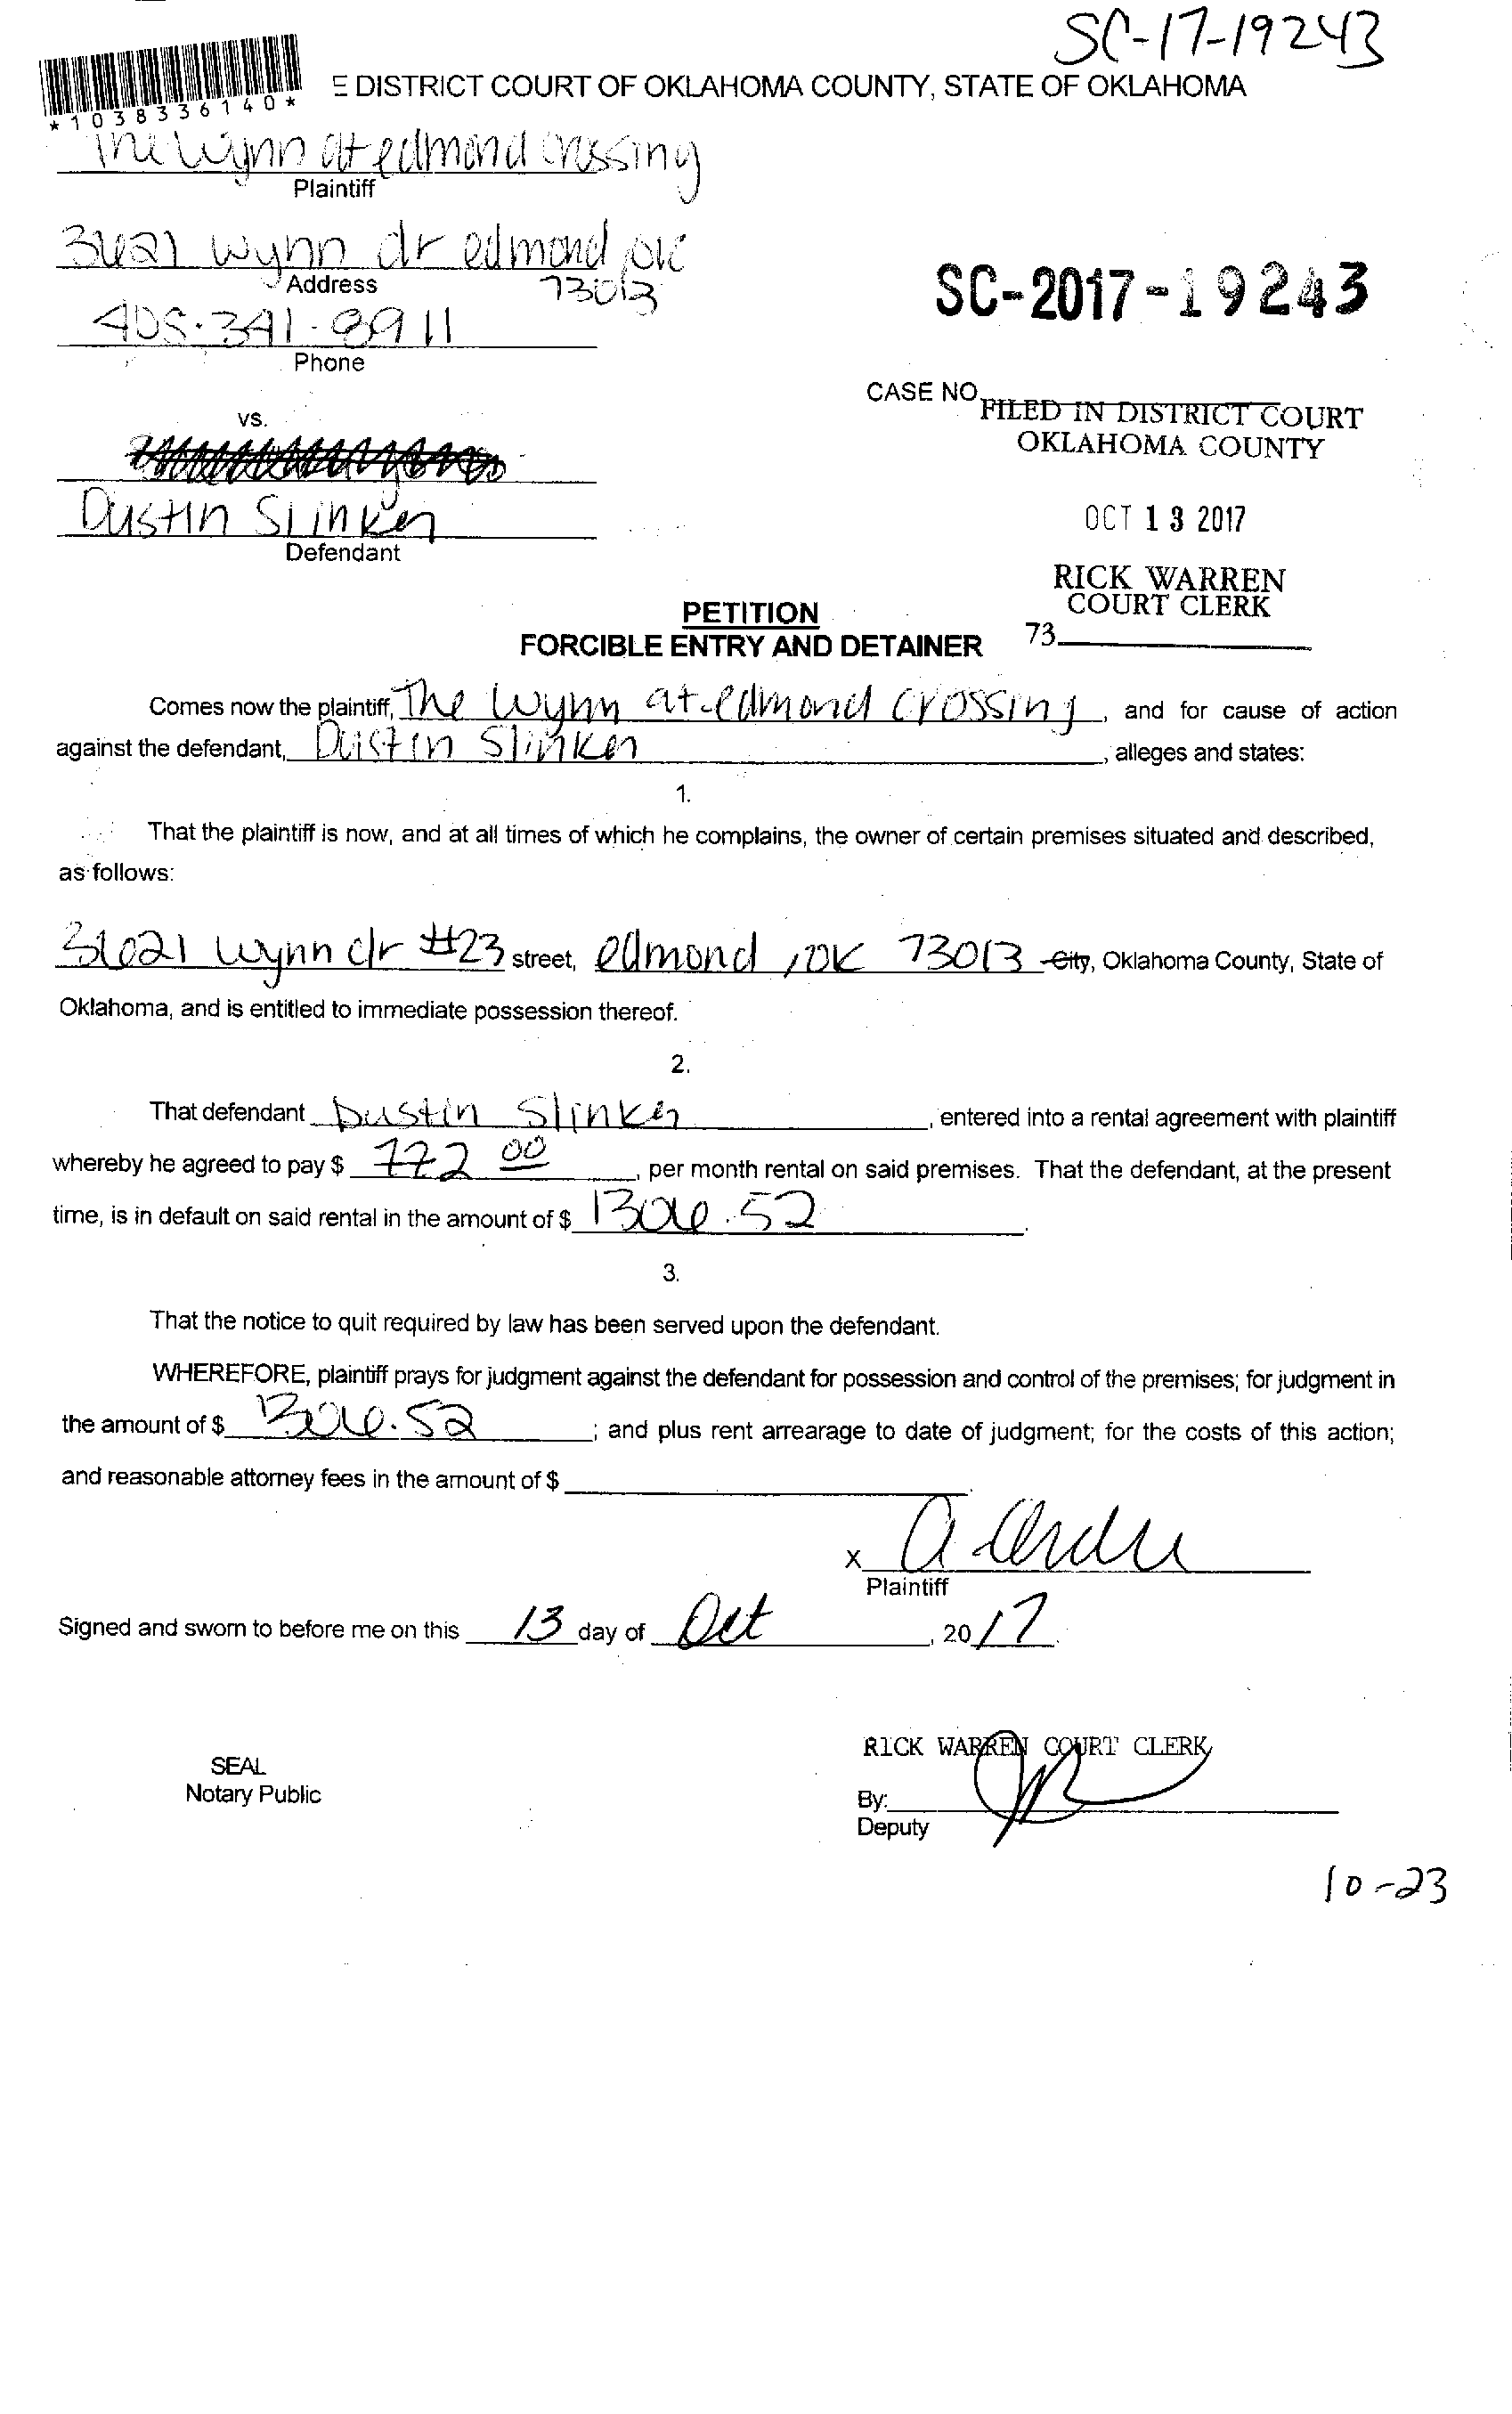 SC-17-19243
E DISTRICT COURT OF OKLAHOMA COUNTY, STATE OF OKLAHOMA
*1038336140*
The Wynn at edmond crossing
Plaintiff
3621 wynn dr edmond OK
Address
73013
SC-2017-19243
405.341.8911
Phone
CASE NO.
FILED IN DISTRICT COURT
OKLAHOMA COUNTY
vs.
Dustin Slinker
Defendant
OCT 13 2017
RICK WARREN
COURT CLERK
PETITION
FORCIBLE ENTRY AND DETAINER
73
Comes now the plaintiff, The Wynn at edmond crossing, and for cause of action
against the defendant, Dustin Slinker, alleges and states:
1.
That the plaintiff is now, and at all times of which he complains, the owner of certain premises situated and described,
as follows:
3621 wynn dr #23 street, edmond, OK 73013 City, Oklahoma County, State of
Oklahoma, and is entitled to immediate possession thereof.
2.
That defendant Dustin Slinker, entered into a rental agreement with plaintiff
whereby he agreed to pay $ 772 00, per month rental on said premises. That the defendant, at the present
time, is in default on said rental in the amount of $ 1306.52.
3.
That the notice to quit required by law has been served upon the defendant.
WHEREFORE, plaintiff prays for judgment against the defendant for possession and control of the premises; for judgment in
the amount of $ 1306.52; and plus rent arrearage to date of judgment; for the costs of this action;
and reasonable attorney fees in the amount of $
x
Plaintiff
Signed and sworn to before me on this 13 day of Oct, 2017.
RICK WARREN COURT CLERK
SEAL
Notary Public
By:
Deputy
10-23